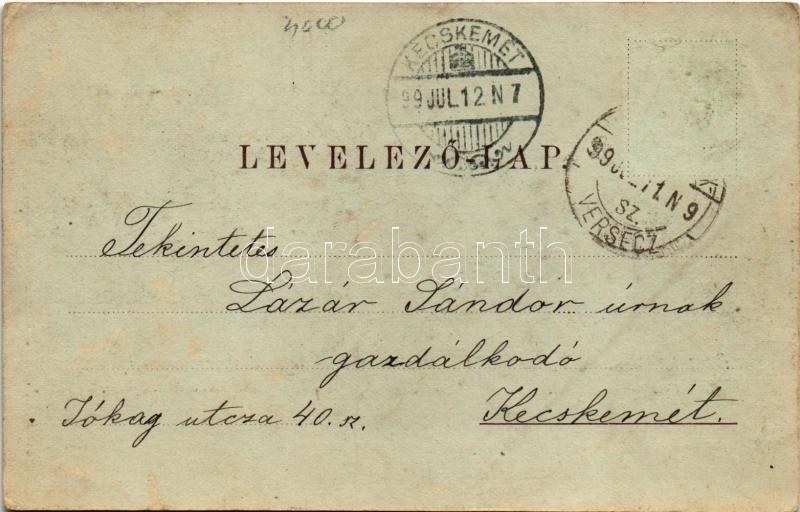 4000
KECSKEMÉT
99 JUL. 12 N 7
LEVELEZŐ-LAP.
99 JUL. 11. N 9
SZ.
VERSECZ
Tekintetes
darabanth
Lázár Sándor úrnak
gazdálkodó
Jókag utcza 40. sz. Kecskemét.